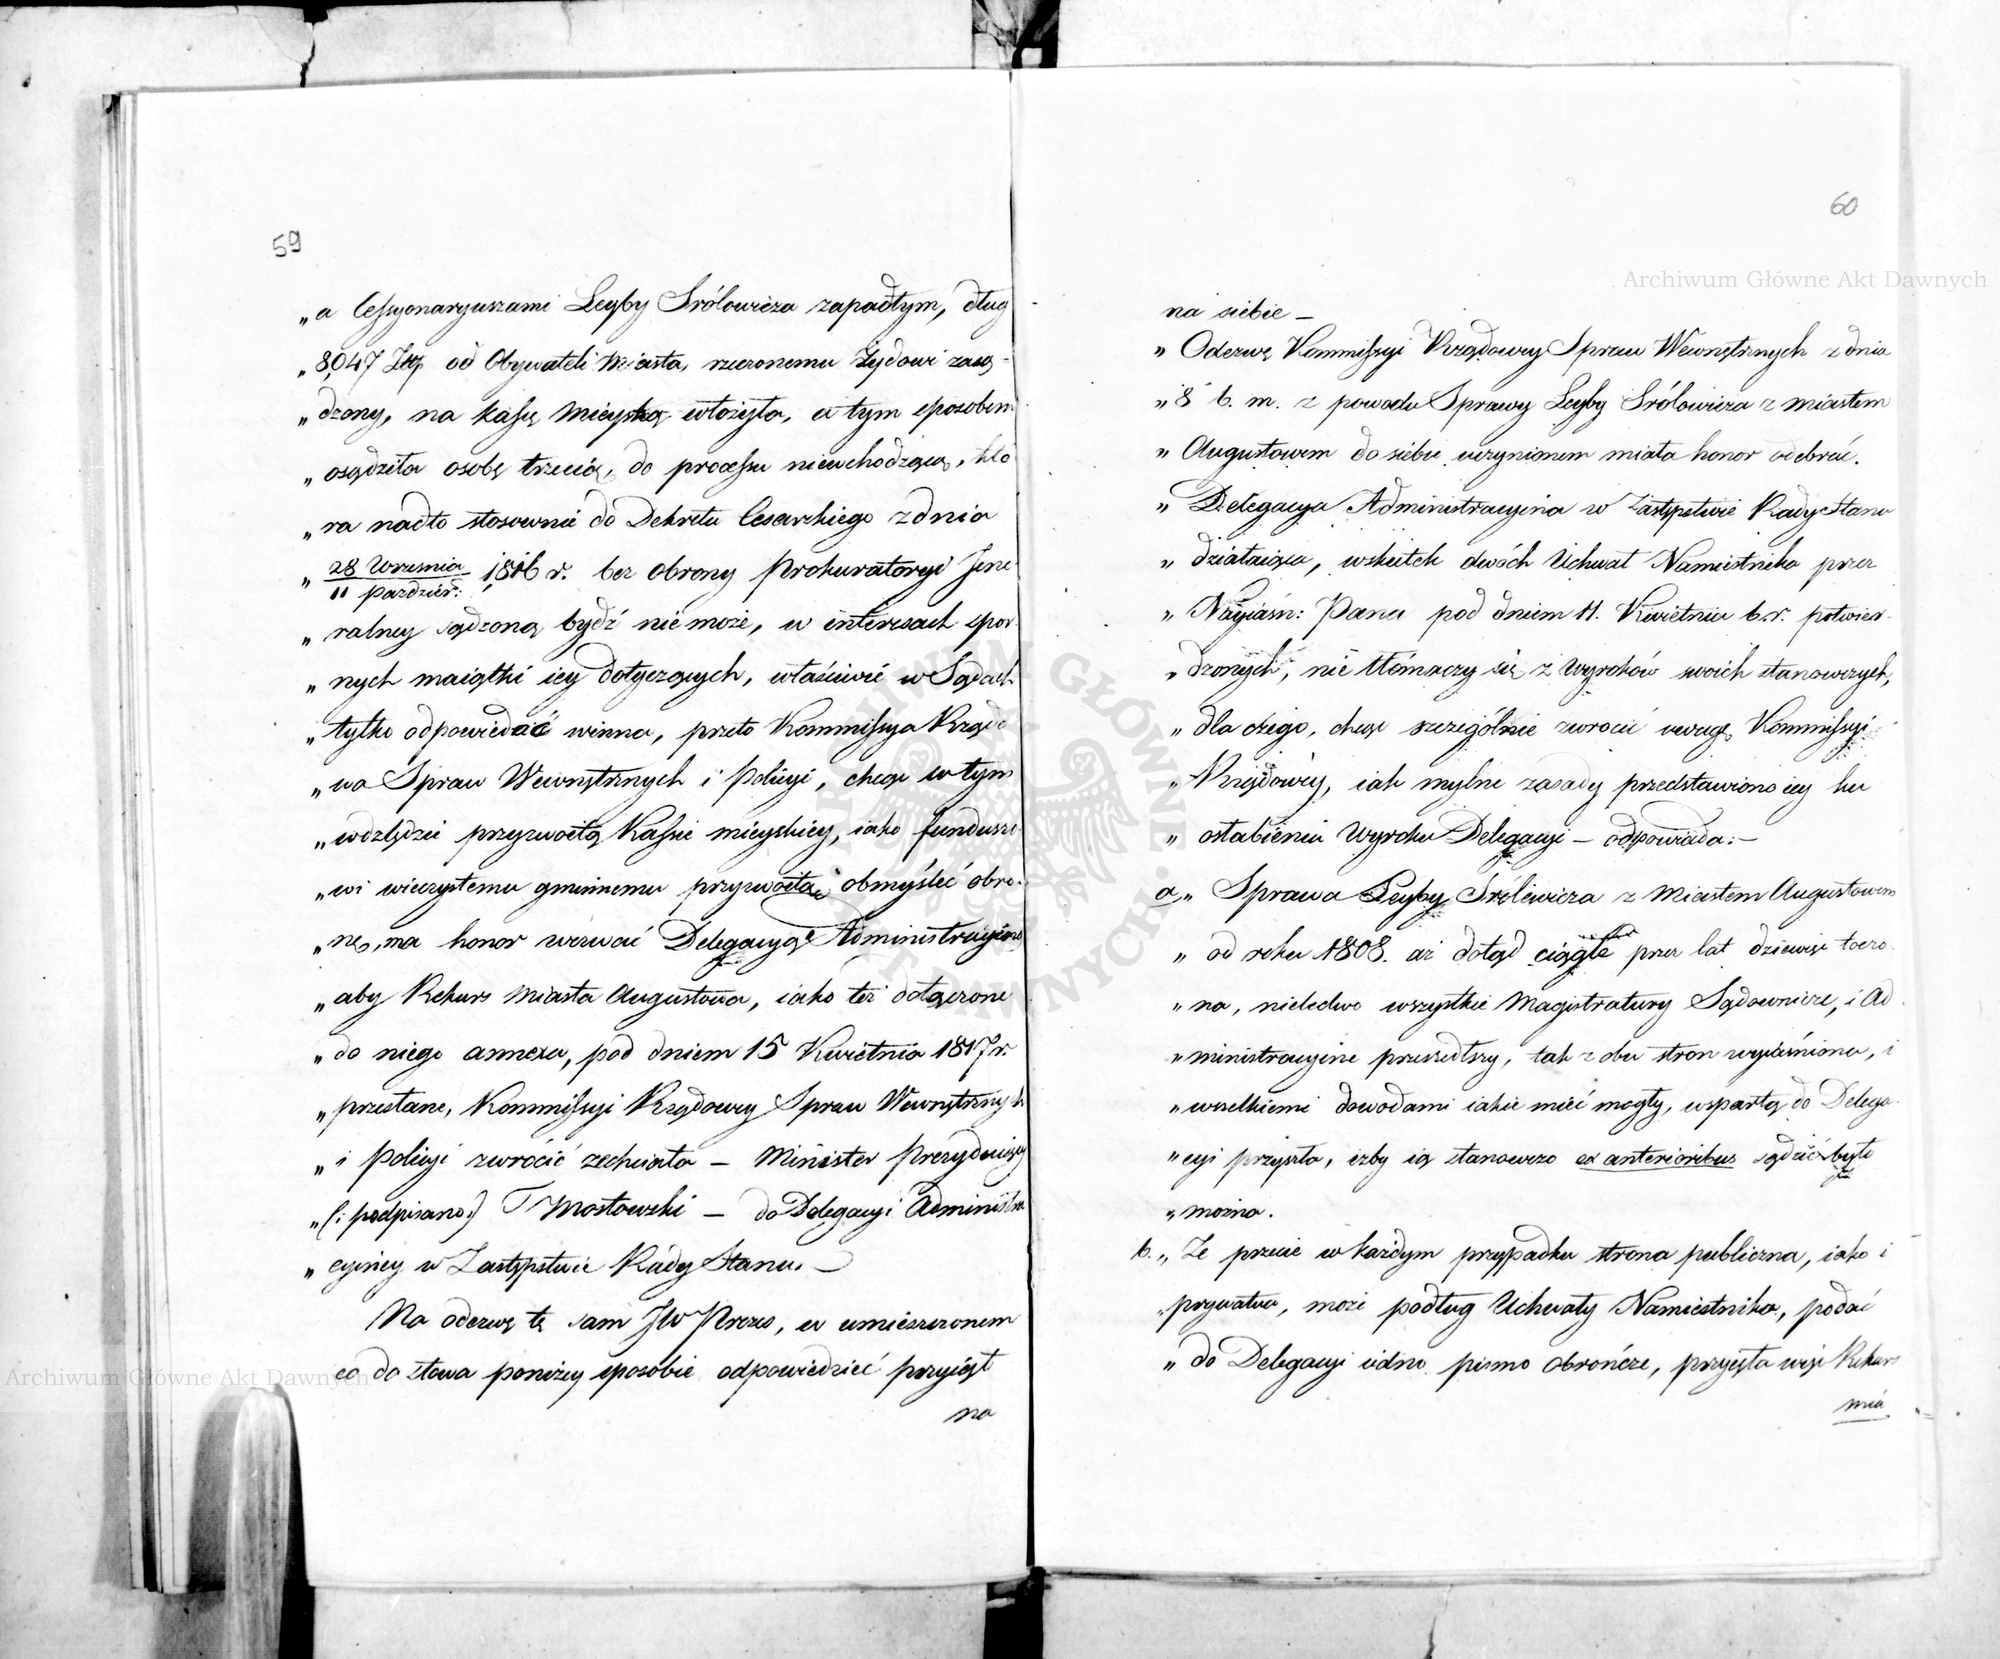 59
„a Cessyonaryuszami Leyby Srólowicza zapadłym, dług
„8,047 Złp. od Obywateli Miasta, rzeczonemu Żydowi zasą-
„dzony, na kassę Mieyską włożyła, a tym sposobem
„osądziła osobę trzecią, do processu niewchodzącą, któ
„ra nadto stosownie do Dekretu Cesarskiego z dnia
„28 Września
11 Paździer: 1816 r. bez obrony Prokuratoryi Jene
„ralney sądzoną bydź nie może, w interesach spor
„nych maiątki iey dotyczących, właściwie w Sądach
„tylko odpowiedać winna, przeto Kommissya Rządo
„wa Spraw Wewnętrznych i Policyi, chcąc w tym
„wdzlędzie przyzwoitą Kassie mieyskiey, iako funduszo
„wi wieczystemu gminnemu przyzwoitą obmyśleć obro-
„nę, ma honor wezwać Delegacyą Administracyiną
„aby Rekurs Miasta Augustowa, iako też dołączone
„do niego annexa, pod dniem 15 Kwietnia 1817 r.
„przesłane, Kommissyi Rządowey Spraw Wewnętrznych
„i Policyi zwrócić zechciała – Minister Prezyduiący
„(: podpisano:) T Mostowski – do Delegacyi Administra
„cyiney w Zastępstwie Rady Stanu. –
Na odezwę tę sam JW Prezes, w umieszczonem
co do słowa poniżey sposobie odpowiedzieć przyiął
na
60
na siebie –
„Odezwę Kommissyi Rządowey Spraw Wewnętrznych z dnia
„8 b. m. z powodu Sprawy Leyby Srólowicza z miastem
„Augustowem do siebie uczynionem miała honor odebrać.
„Delegacya Administracyina w Zastępstwie Rady Stanu
„działaiąca, wskutek dwóch Uchwał Namiestnika przez
„Nayiaśn: Pana pod dniem 11. Kwietnia b. r. potwier
„dzonych, nie tłómaczy się z Wyroków swoich stanowczych,
„dla czego, chcąc szczególnie zwrócić uwagę Kommissyi
„Rządowey, iak mylne zasady przedstawiono iey ku
„osłabieniu Wyroku Delegacyi – odpowiada: –
a, „Sprawa Leyby Srólewicza z Miastem Augustowem
„od roku 1808. aż dotąd ciągle przez lat dziewięć toczo
„na, nieledwo wszystkie Magistratury Sądownicze, i Ad
„ministracyine przeszedłszy, tak z obu stron wyiaśniona, i
„wszelkiemi dowodami iakie mieć mogły, wspartą do Delega
„cyi przyszła, iżby ią stanowczo ex anterioribus sądzić było
„można.
b. „Że przecie w każdym przypadku strona publiczna, iako i
„prywatna, może podług Uchwały Namiestnika, podać
„do Delegacyi iedno pismo obrończe, przyięła więc Rekurs
mia